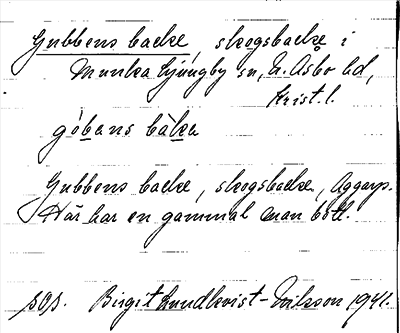 Gubbens backe, skogsbacke i
Munka Ljungby sn, N. Åsbo hd,
Krist. l.
góbans bàka
Gubbens backe, skogsbacke, Aggarp.
Här har en gammal man bott.
sop. Birgit Lundkvist-Eriksson 1941.